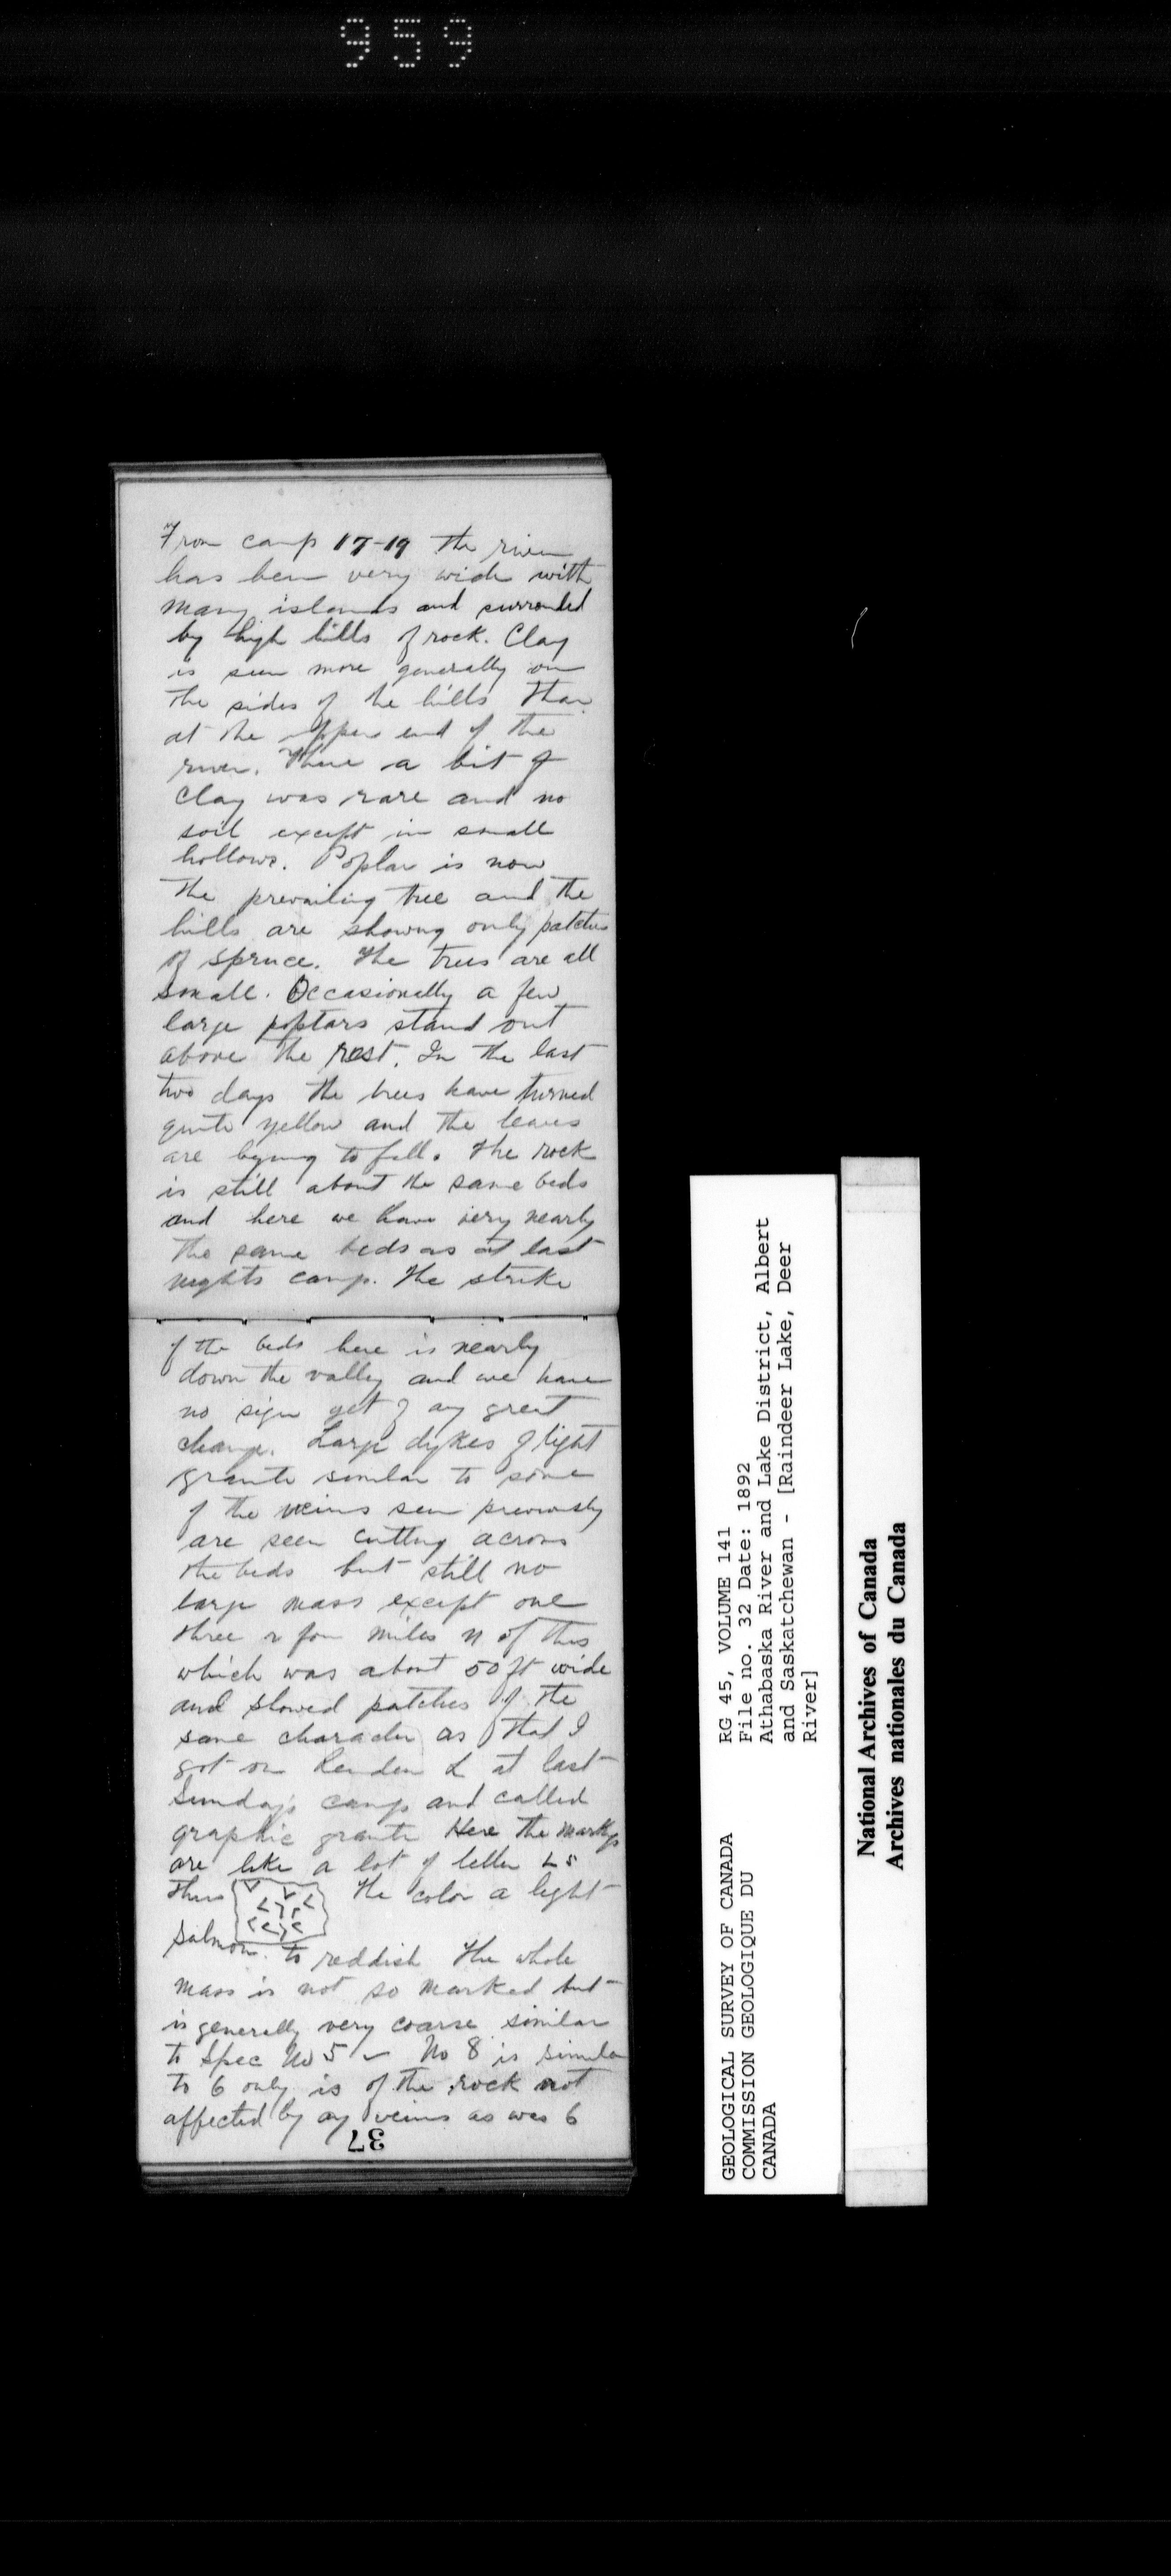 959
From camp 17-19 the river
has been very wide with
many islands and surrounded
by high hills of rock. Clay
is seen more generally on
the sides of the hills than
at the upper end of the
river. There a bit of
clay was rare and no
soil except in small
hollows. Poplar is now
the prevailing tree and the
hills are showing only patches
of spruce. The trees are all
small. Occasionally a few
large poplars stand out
above the rest. In the last
two days the trees have turned
quite yellow and the leaves
are to fall. The rock
is still about the same beds
and here we have very nearly
the same beds as at last
nights camp. The strike
of the beds here is nearly
down the valley and we have
no sign yet of any great
change. Large dykes of light
granite similar to some
of the veins seen previously
are seen cutting across
the beds but still no
large mass except one
three or four miles N of this
which was about 50 ft wide
and showed patches of the
same character as that I
got on L at last
Sunday's camp and called
graphic granite Here the markgs
are like a lot of letter Ls
thus the color a light
salmon to reddish The whole
mass is not so marked but
is generally very coarse similar
to Spec No 5 – No 8 is similar
to 6 only is of the rock not
affected by any veins as was 6
37
GEOLOGICAL SURVEY OF CANADA
COMMISSION GEOLOGIQUE DU
CANADA
RG 45, VOLUME 141
File no. 32 Date: 1892
Athabaska River and Lake District, Albert
and Saskatchewan - [Raindeer Lake, Deer
River]
National Archives of Canada
Archives nationales du Canada